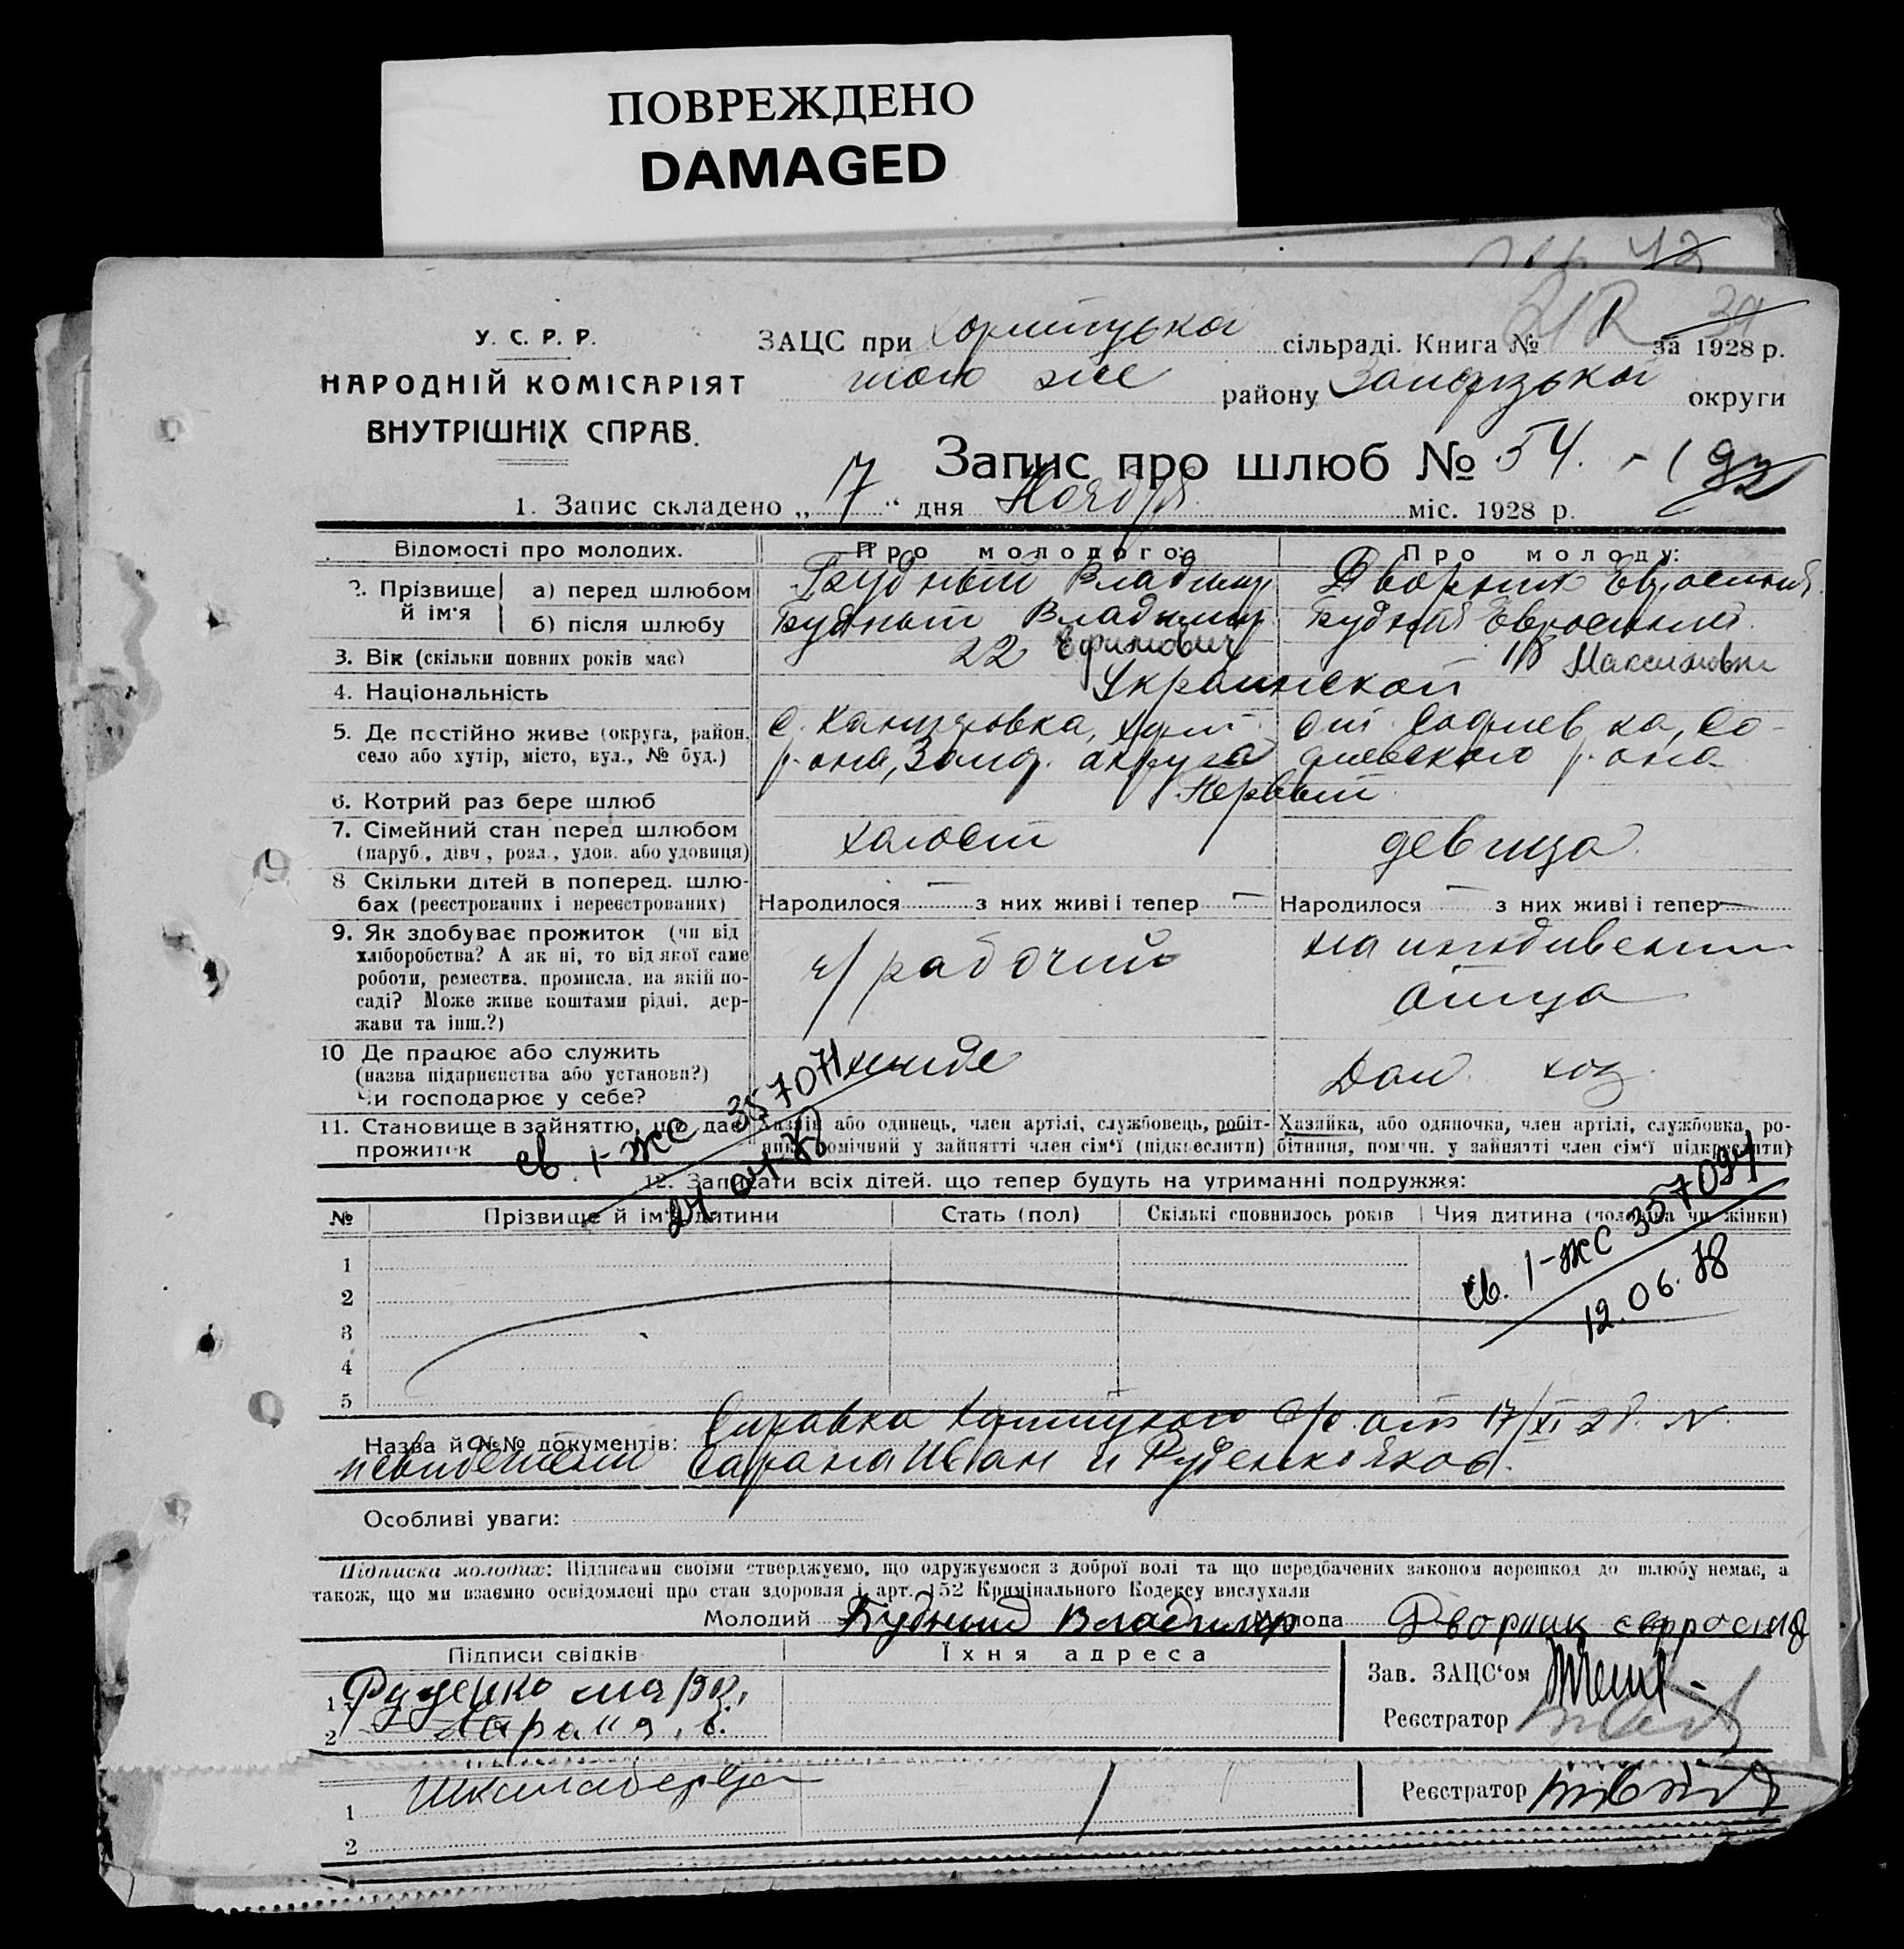 ПОВРЕЖДЕНО
DAMAGED
У. С. Р. Р.
НАРОДНІЙ КОМІСАРІЯТ
ВНУТРІШНІХ СПРАВ.
ЗАЦС при Хортицькой сільраді. Книга № 1 за 1928 р.
того же району Запорізькой округи
Запис про шлюб № 54.
1. Запис складено „ 17 “ дня Ноября міс. 1928 р.
Відомості про молодих. Про молодого: Про молоду:
2. Прізвище й ім'я а) перед шлюбом Будный Владимир Дворник Евросиния
б) після шлюбу Будный Владимир Ефимович Будная Евросиния Максимовна
3. Вік (скільки повних років має) 22 18
4. Національність Украинской
5. Де постійно живе (округа, район, село або хутір, місто, вул., № буд.) с. Канцеровка, Хорт. р-она, Запор. округа
6. Котрий раз бере шлюб Первый
7. Сімейний стан перед шлюбом холост девица
(паруб., дівч., розл., удов. або удовиця)
8 Скільки дітей в поперед. шлю-
бах (реєстрованих і нереєстрованих) Народилося — з них живі і тепер — Народилося — з них живі і тепер —
9. Як здобуває прожиток (чи від
хліборобства? А як ні, то від якої саме
роботи, ремества, промисла, на якій по-
саді? Може живе коштами рідні, дер-
жави та інш.?)
ч/рабочий
на иждивении
отца
10 Де працює або служить
(назва підприємства або установи?)
Чи господарює у себе?
Дом. хоз.
11. Становище в зайнятті, що дає
прожиток
Хазяїн або одинець, член артілі, службовець, робіт-
ник, помічний у зайнятті член сім'ї (підкреслити)
Хазяйка, або одиночка, член артілі, службовка, ро-
бітниця, помічн. у зайнятті член сім'ї підкреслити)
св. 1-ЖС 357071
24.04.78
12. Записати всіх дітей, що тепер будуть на утриманні подружжя:
№ Прізвище й ім'я дитини Стать (пол) Скількі сповнилось років Чия дитина (чоловіка чи жінки)
1
2
3
4
5
св. 1-ЖС 357094
12.06.78
Назва й №№ документів: Справка Хортицкого с/с от 17/XI 28 №
и свидетели Сарана Иван и Руденко Яков.
Особливі уваги:
Підписка молодих: Підписами своїми стверджуємо, що одружуємося з доброї волі та що передбачених законом перешкод до шлюбу немає, а
також, що ми взаємно освідомлені про стан здоровля і арт. 152 Кримінального Кодексу вислухали
Молодий Будный Владимир Молода Дворник евросия
Підписи свідків Їхня адреса
Зав. ЗАЦС'ом
1 Руденко
2 Сарана
Реєстратор
1
Реєстратор
2